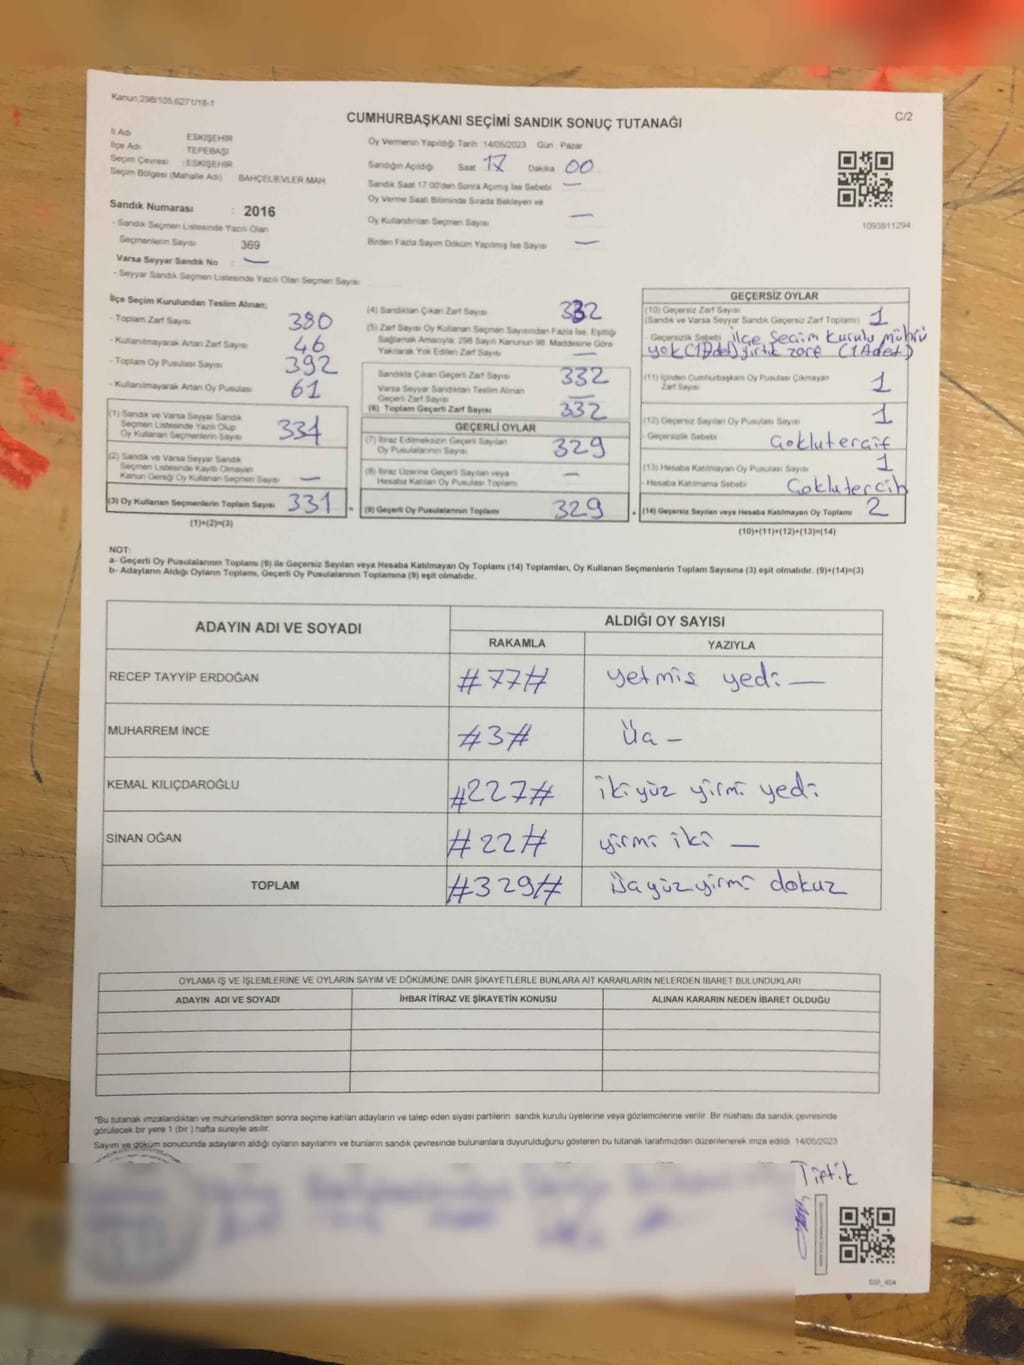 Kanun:298/105;6271/18-1
CUMHURBAŞKANI SEÇİMİ SANDIK SONUÇ TUTANAĞI
C/2
İl Adı ESKİŞEHİR
İlçe Adı TEPEBAŞI
Seçim Çevresi :ESKİŞEHİR
Seçim Bölgesi (Mahalle Adı) BAHÇELİEVLER MAH.
Oy Vermenin Yapıldığı Tarih 14/05/2023 Gün Pazar
Sandığın Açıldığı Saat 17 Dakika 00
Sandık Saat 17:00'den Sonra Açımış İse Sebebi —
Oy Verme Saati Bitiminde Sırada Bekleyen ve
Oy Kullandırılan Seçmen Sayısı —
Birden Fazla Sayım Döküm Yapılmış İse Sayısı —
1093811294
Sandık Numarası : 2016
- Sandık Seçmen Listesinde Yazılı Olan
Seçmenlerin Sayısı 369
Varsa Seyyar Sandık No —
- Seyyar Sandık Seçmen Listesinde Yazılı Olan Seçmen Sayısı
İlçe Seçim Kurulundan Teslim Alınan;
- Toplam Zarf Sayısı 380
- Kullanılmayarak Artan Zarf Sayısı 46
- Toplam Oy Pusulası Sayısı 392
- Kullanılmayarak Artan Oy Pusulası 61
(1) Sandık ve Varsa Seyyar Sandık
Seçmen Listesinde Yazılı Olup
Oy Kullanan Seçmenlerin Sayısı 331
(2) Sandık ve Varsa Seyyar Sandık
Seçmen Listesinde Kayıtlı Olmayan
Kanun Gereği Oy Kullanan Seçmen Sayısı —
(3) Oy Kullanan Seçmenlerin Toplam Sayısı 331 =
(1)+(2)=(3)
(4) Sandıktan Çıkan Zarf Sayısı 332
(5) Zarf Sayısı Oy Kullanan Seçmen Sayısından Fazla İse, Eşitliği
Sağlamak Amacıyla, 298 Sayılı Kanunun 98. Maddesine Göre
Yakılarak Yok Edilen Zarf Sayısı —
Sandıkta Çıkan Geçerli Zarf Sayısı 332
Varsa Seyyar Sandıktan Teslim Alınan
Geçerli Zarf Sayısı —
(6) Toplam Geçerli Zarf Sayısı 332
GEÇERLİ OYLAR
(7) İtiraz Edilmeksizin Geçerli Sayılan
Oy Pusulalarının Sayısı 329
(8) İtiraz Üzerine Geçerli Sayılan veya
Hesaba Katılan Oy Pusulası Toplamı —
(9) Geçerli Oy Pusulalarının Toplamı 329 +
GEÇERSİZ OYLAR
(10) Geçersiz Zarf Sayısı
(Sandık ve Varsa Seyyar Sandık Geçersiz Zarf Toplamı) 1
- Geçersizlik Sebebi ilçe Seçim kurulu mührü
yok (1Adet) yırtık zarf (1Adet)
(11) İçinden Cumhurbaşkanı Oy Pusulası Çıkmayan
Zarf Sayısı 1
(12) Geçersiz Sayılan Oy Pusulası Sayısı 1
- Geçersizlik Sebebi Çoklutercif
(13) Hesaba Katılmayan Oy Pusulası Sayısı 1
- Hesaba Katılmama Sebebi Çoklutercih
(14) Geçersiz Sayılan veya Hesaba Katılmayan Oy Toplamı 2
(10)+(11)+(12)+(13)=(14)
NOT:
a- Geçerli Oy Pusulalarının Toplamı (9) ile Geçersiz Sayılan veya Hesaba Katılmayan Oy Toplamı (14) Toplamları, Oy Kullanan Seçmenlerin Toplam Sayısına (3) eşit olmalıdır. (9)+(14)=(3)
b- Adayların Aldığı Oyların Toplamı, Geçerli Oy Pusulalarının Toplamına (9) eşit olmalıdır.
ADAYIN ADI VE SOYADI
ALDIĞI OY SAYISI
RAKAMLA YAZIYLA
RECEP TAYYİP ERDOĞAN #77# yetmiş yedi —
MUHARREM İNCE #3# Üç —
KEMAL KILIÇDAROĞLU #227# iki yüz yirmi yedi
SİNAN OĞAN #22# yirmi iki —
TOPLAM #329# Üçyüzyirmi dokuz
OYLAMA İŞ VE İŞLEMLERİNE VE OYLARIN SAYIM VE DÖKÜMÜNE DAİR ŞİKAYETLERLE BUNLARA AİT KARARLARIN NELERDEN İBARET BULUNDUKLARI
ADAYIN ADI VE SOYADI İHBAR İTİRAZ VE ŞİKAYETİN KONUSU ALINAN KARARIN NEDEN İBARET OLDUĞU
*Bu tutanak imzalandıktan ve mühürlendikten sonra seçime katılan adayların ve talep eden siyasi partilerin sandık kurulu üyelerine veya gözlemcilerine verilir. Bir nüshası da sandık çevresinde
görülecek bir yere 1 (bir) hafta süreyle asılır.
Sayım ve döküm sonucunda adayların aldığı oyların sayılarını ve bunların sandık çevresinde bulunanlara duyurulduğunu gösteren bu tutanak tarafımızdan düzenlenerek imza edildi. 14/05/2023
Tiftik